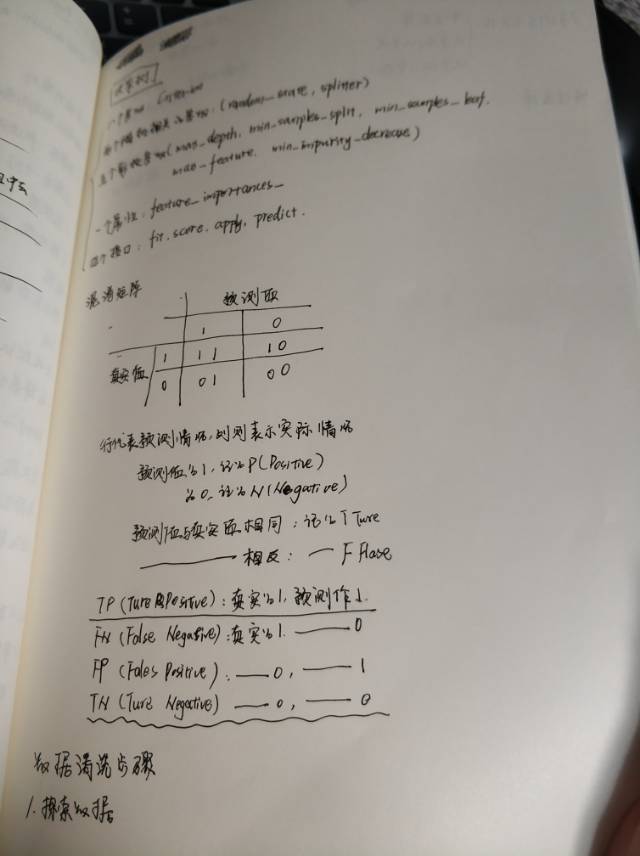 决策树
一个参数 Criterion
两个随机相关参数:(random_state, splitter)
五个剪枝参数(max_depth, min_samples_split, min_samples_leaf,
max_feature, min_impurity_decrease)
一个属性:feature_importances_
四个接口:fit, score, apply, predict.
混淆矩阵
预测值
1 0
真实值 1 11 10
0 01 00
行代表预测情况,列则表示实际情况
预测值为1,记为P(Positive)
为0,记为N(Negative)
预测值与真实值相同:记为T Ture
—— 相反:— F Flase
TP(Ture Positive):真实为1,预测作1.
FN(False Negative):真实为1. —— 0
FP(Fales Positive):—— 0, —— 1
TN(Ture Negative) —— 0, —— 0
数据清洗步骤
1. 探索数据